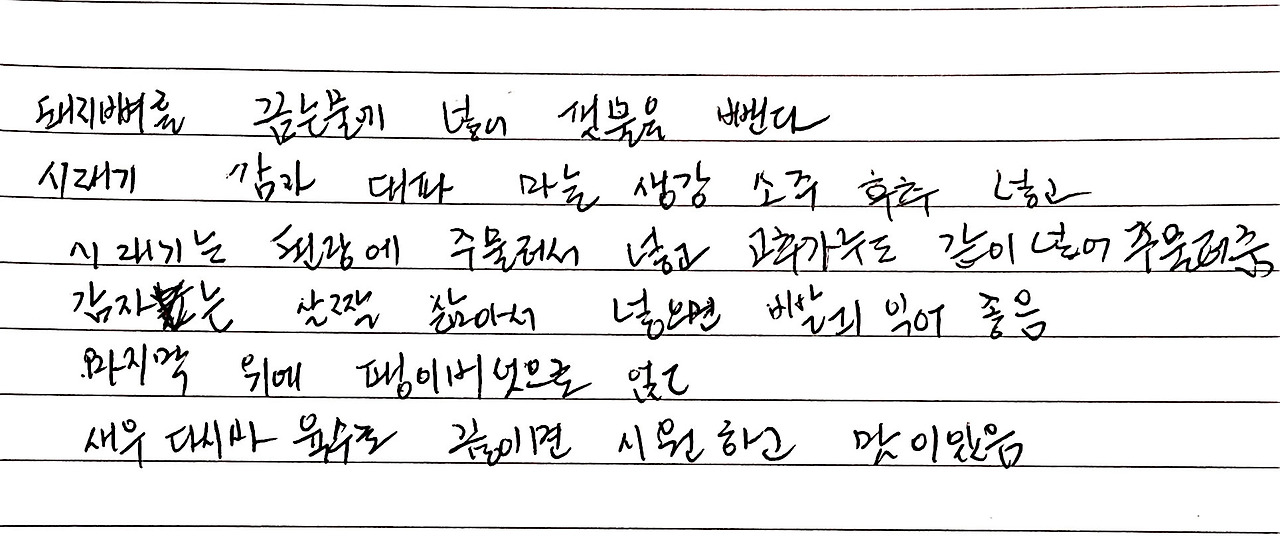 돼지뼈를 끓는물에 넣어 잿물을 뺀다
시래기 감자 대파 마늘 생강 소주 후추 넣고
시래기는 된장에 주물러서 넣고 고추가루도 같이 넣어 주물러줌
감자는 살짝 삶아서 넣으면 빨리 익어 좋음
마지막 위에 팽이버섯으로 얹고
새우 다시마 육수로 끓이면 시원하고 맛이있음